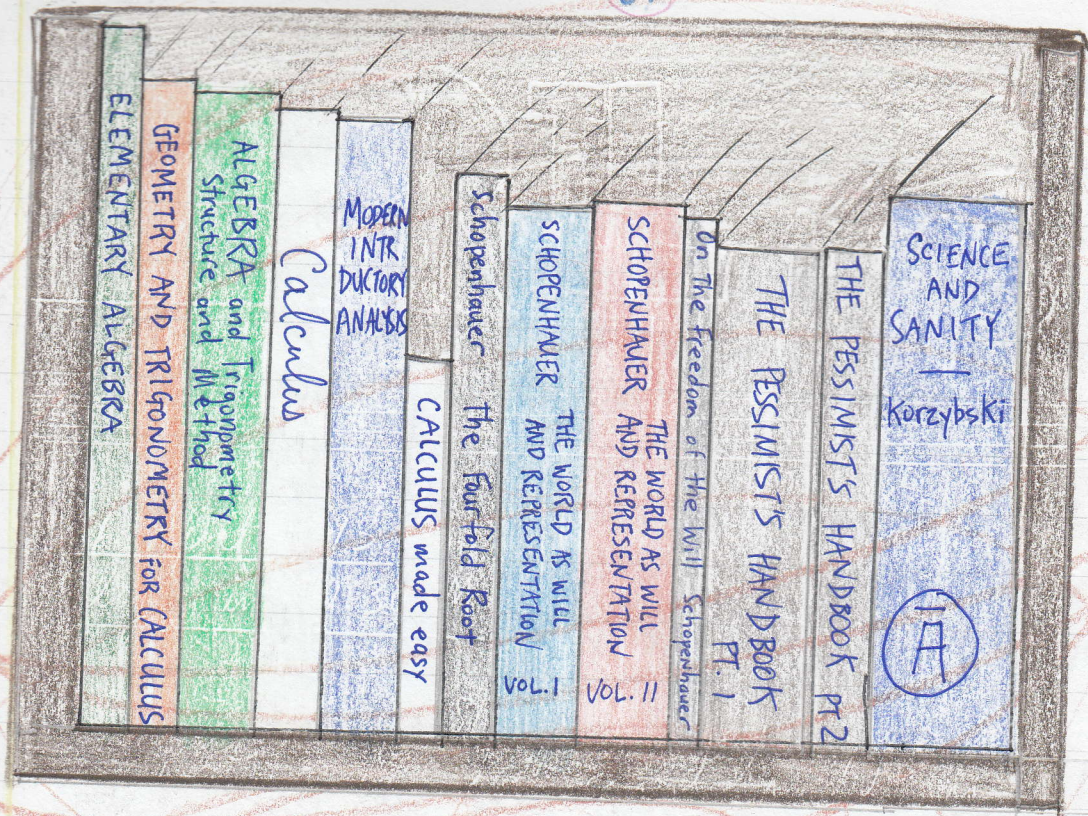 ELEMENTARY ALGEBRA
GEOMETRY AND TRIGONOMETRY for CALCULUS
ALGEBRA and Trigonometry
Structure and Method
Calculus
MODERN
INTR
DUCTORY
ANALYSIS
CALCULUS made easy
Schopenhauer The Fourfold Root
SCHOPENHAUER THE WORLD AS WILL
AND REPRESENTATION
VOL. I
SCHOPENHAUER THE WORLD AS WILL
AND REPRESENTATION
VOL. II
On The Freedom of the Will Schopenhauer
THE PESSIMIST'S HANDBOOK
PT. 1
THE PESSIMIST'S HANDBOOK PT 2
SCIENCE
AND
SANITY
—
Korzybski
A